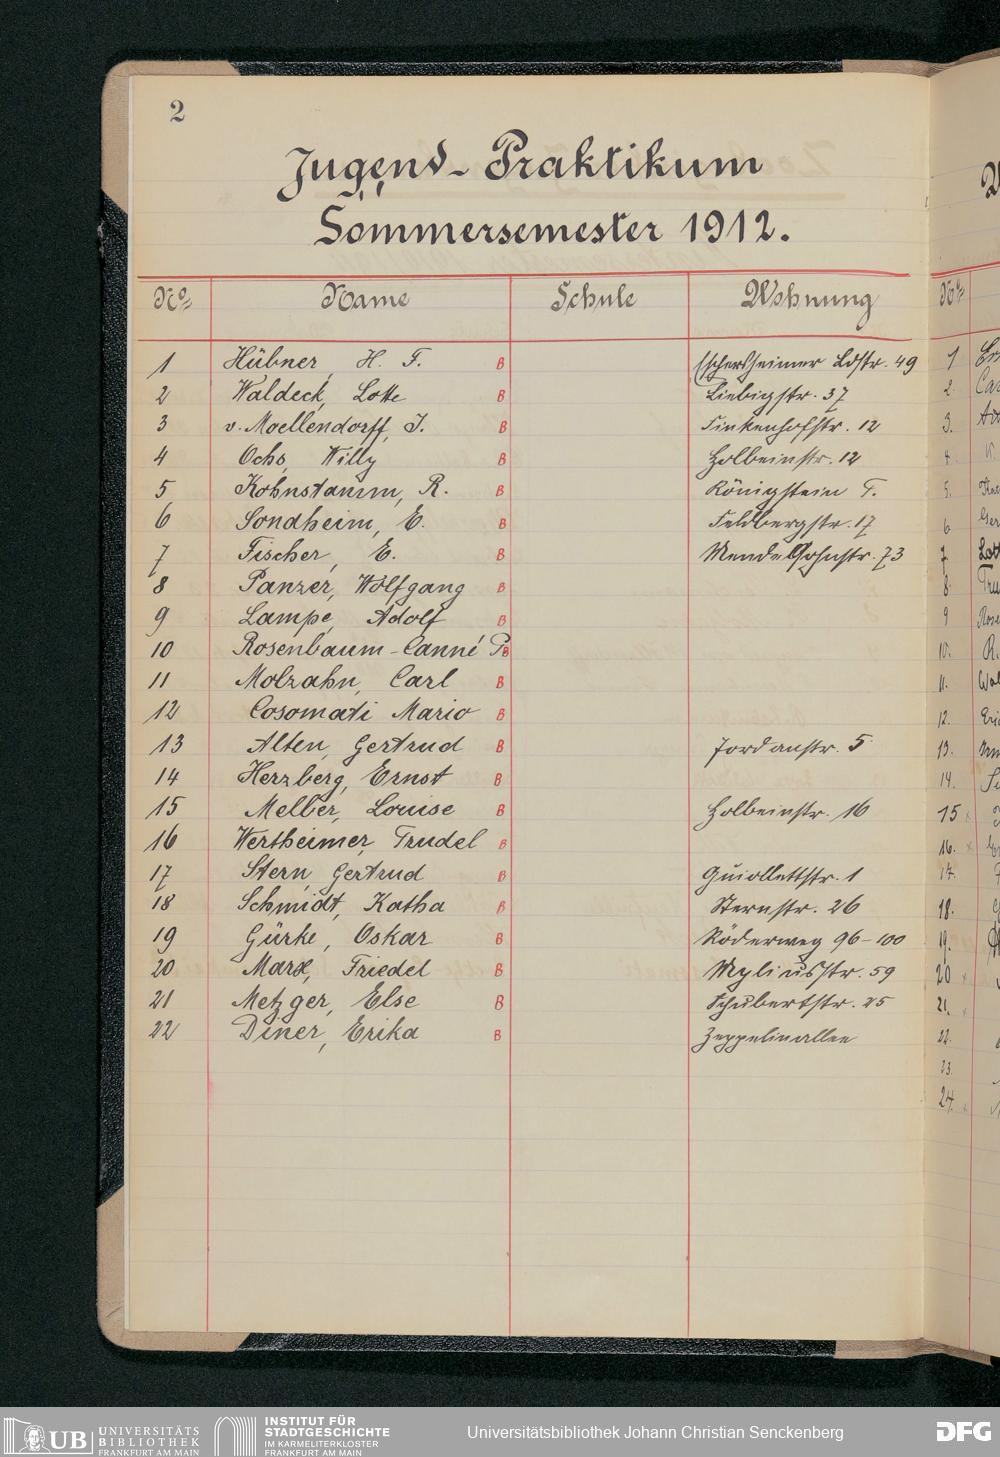 2
Jugend-Praktikum
Sommersemester 1912.
No. Name Schule Wohnung
1 Hübner, H. F. B Eschersheimer Ldstr. 49
2 Waldeck, Lotte B Liebigstr. 37
3 v. Moellendorff, J. B Finkenhofstr. 12
4 Ochs, Willy B Holbeinstr. 12
5 Kohnstamm, R. B Königstein T.
6 Sondheim, E. B Feldbergstr. 17
7 Fischer, E. B Mendelssohnstr. 73
8 Panzer, Wolfgang B
9 Lampe, Adolf B
10 Rosenbaum-Canné P. B
11 Molzahn, Carl B
12 Cosomati Mario B
13 Alten, Gertrud B Jordanstr. 5
14 Herzberg, Ernst B
15 Melber, Louise B Holbeinstr. 16
16 Wertheimer, Trudel B
17 Stern, Gertrud B Guiollettstr. 1
18 Schmidt, Katha B Sternstr. 26
19 Gürke, Oskar B Röderweg 96-100
20 Marx, Friedel B Myliusstr. 59
21 Metzger, Else B Schubertstr. 25
22 Diner, Erika B Zeppelinallee
No.
1
2.
3.
4.
5.
6
7
8.
9
10.
11.
12.
13.
14.
15
16.
17.
18.
19.
20
21.
22.
23.
24.
UB UNIVERSITÄTS
BIBLIOTHEK
FRANKFURT AM MAIN
INSTITUT FÜR
STADTGESCHICHTE
IM KARMELITERKLOSTER
FRANKFURT AM MAIN
Universitätsbibliothek Johann Christian Senckenberg
DFG